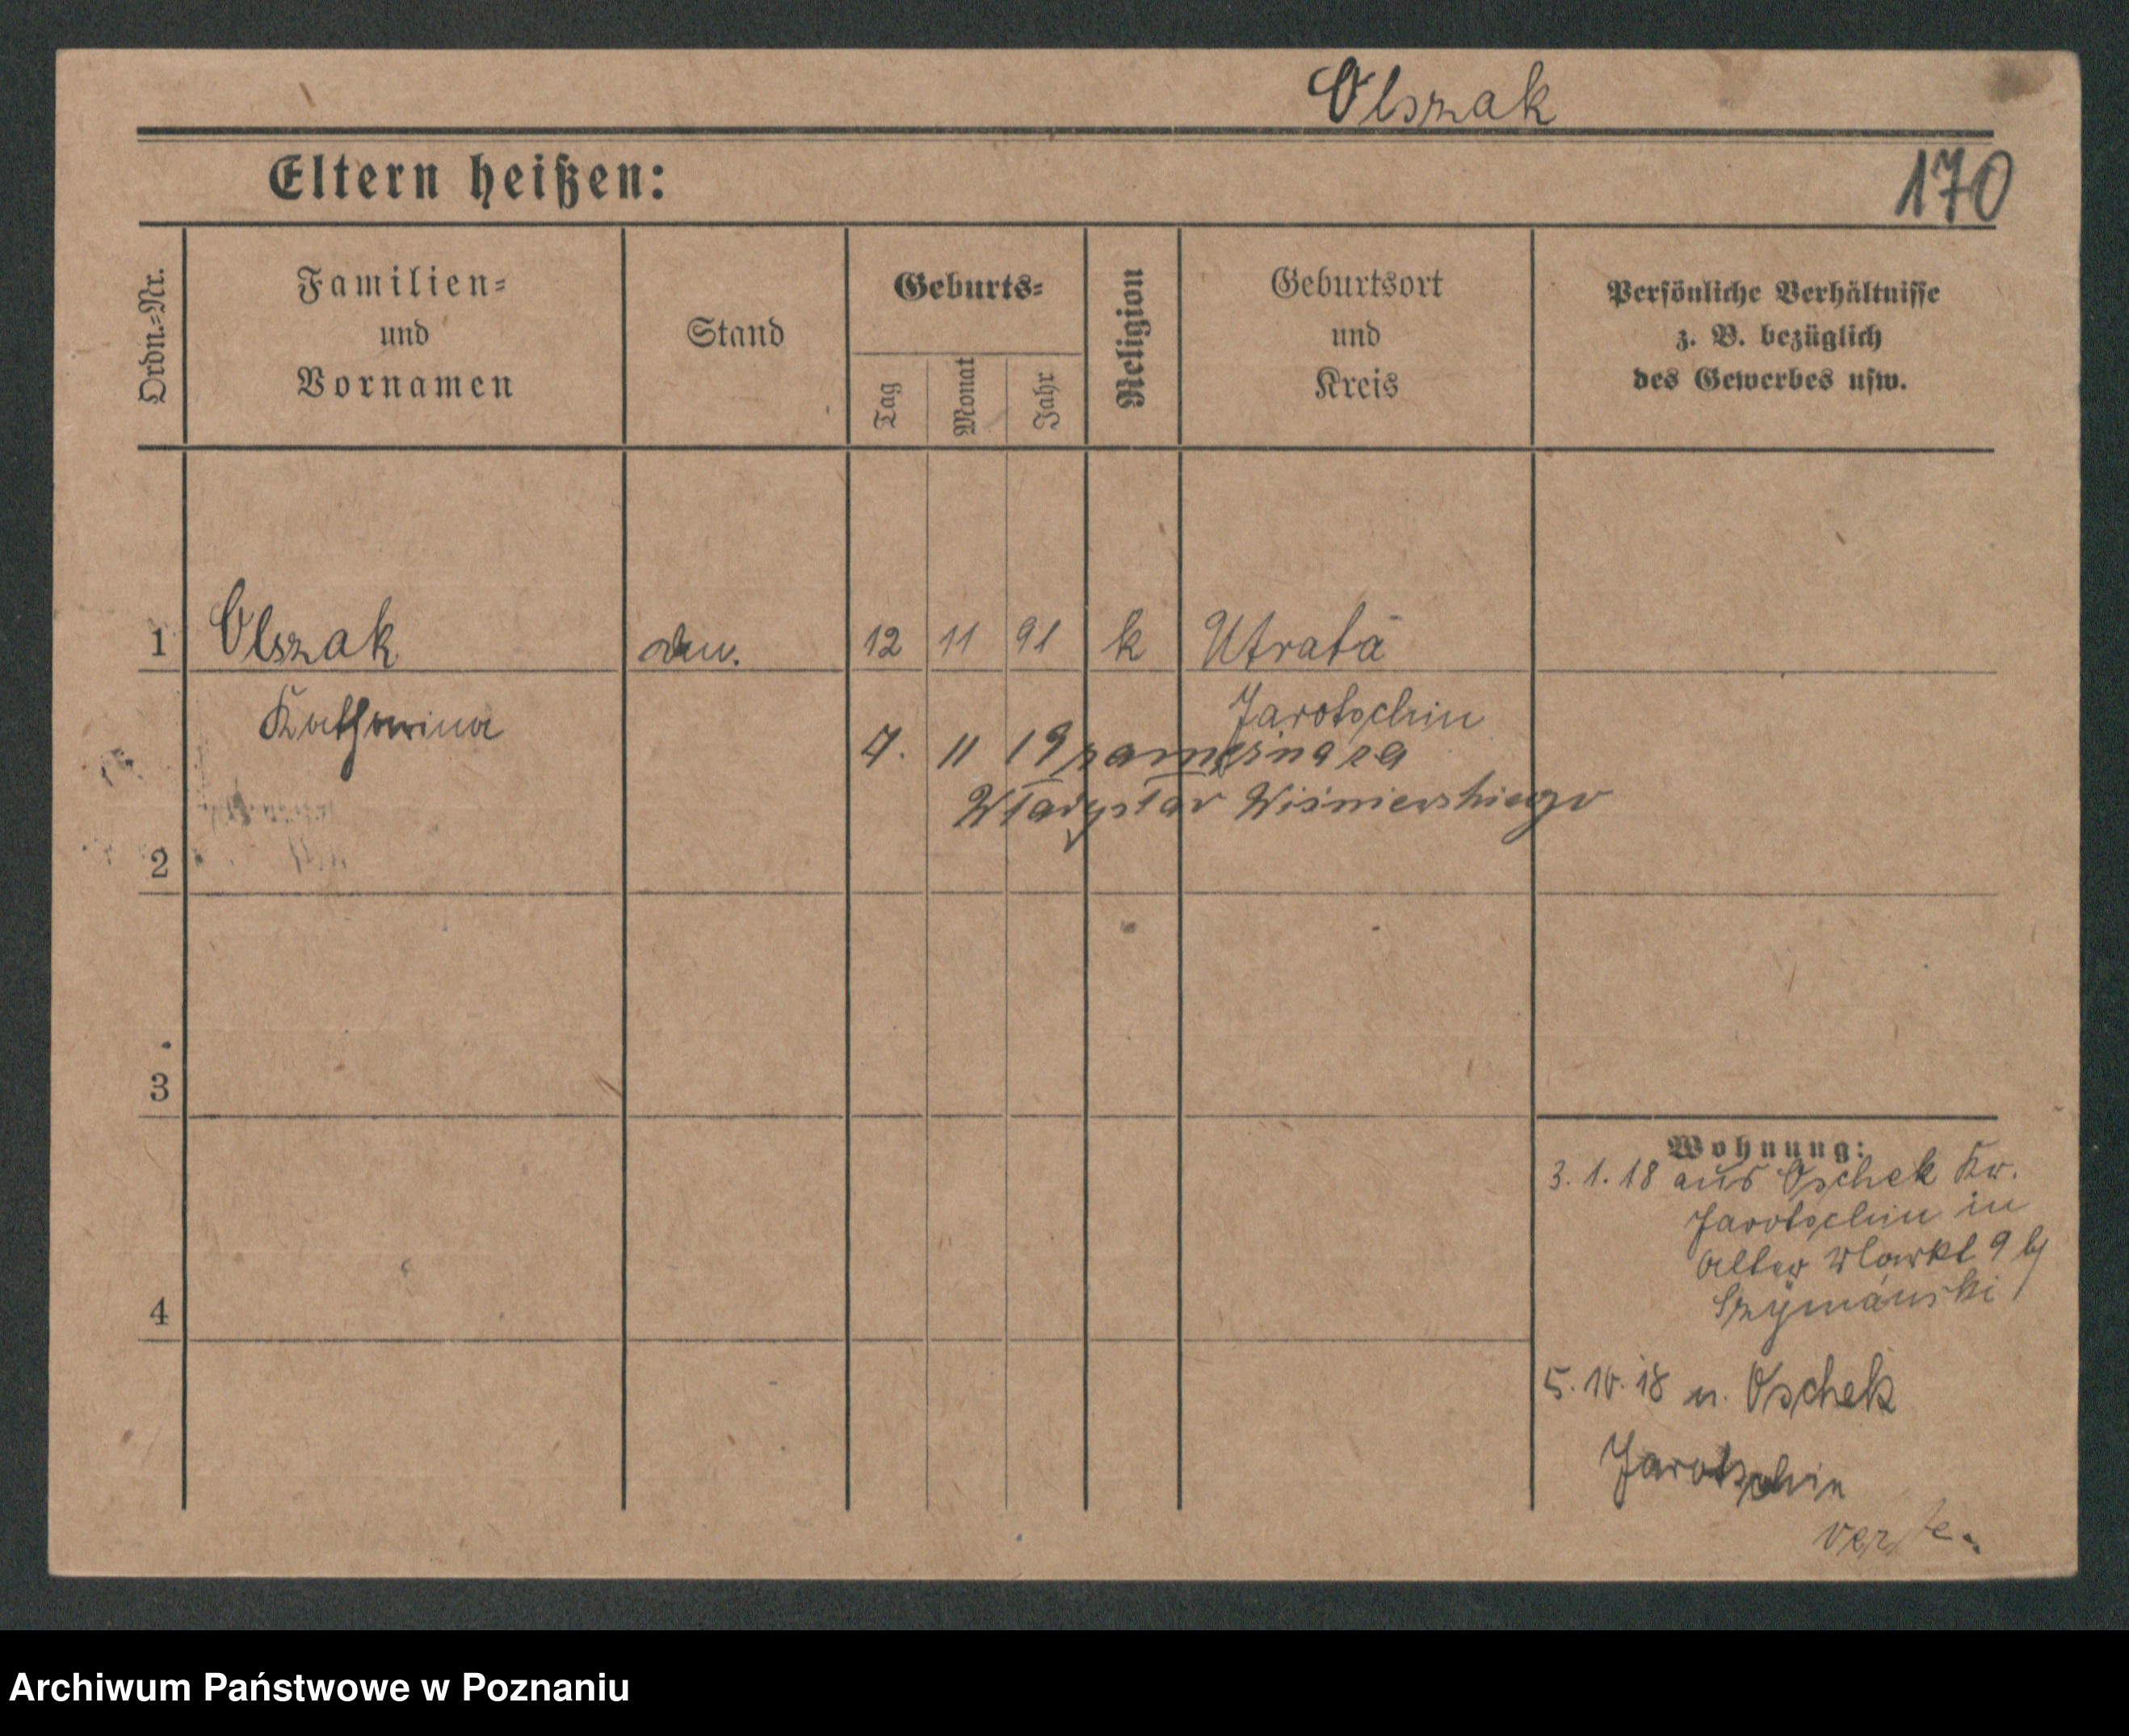 Olszak
Eltern heißen:
170
Ordn.-Nr.
Familien-
und
Vornamen
Stand
Geburts-
Tag
Monat
Jahr
Religion
Geburtsort
und
Kreis
Persönliche Verhältnisse
z. B. bezüglich
des Gewerbes usw.
1 Olszak 12 11 91 k Utrata
Katharina Jarotschin
7. 11 19 zamężna za
Władysław Wiśniewskiego
2
3
4
Wohnung:
3. 1. 18 aus Oschek Kr.
Jarotschin in
Alter Markt 9 bj
Szymański
5. 10. 18 n. Oschek
Jarotschin
Archiwum Państwowe w Poznaniu